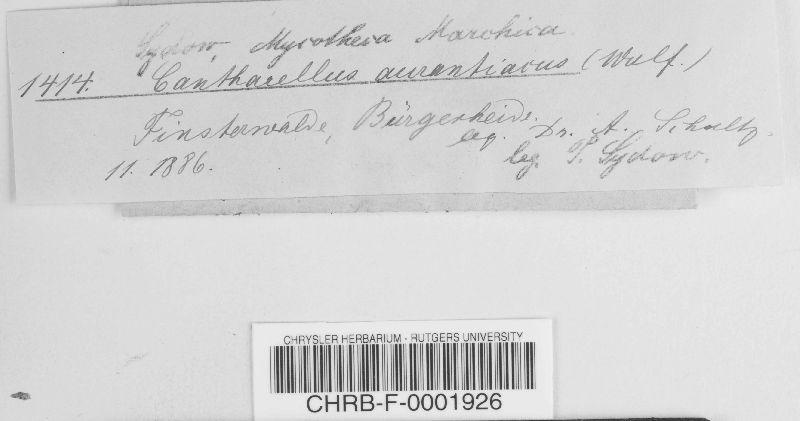 Sydow, Mycotheca Marchica.
1414. Cantharellus aurantiacus (Wulf.)
Finsterwalde, Bürgerheide.
leg. Dr. A. Schultz.
11. 1886. leg. P. Sydow.
CHRYSLER HERBARIUM - RUTGERS UNIVERSITY
CHRB-F-0001926